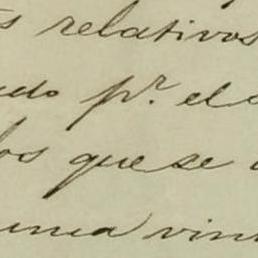 s relativos
do pr. el
os que se
una vin